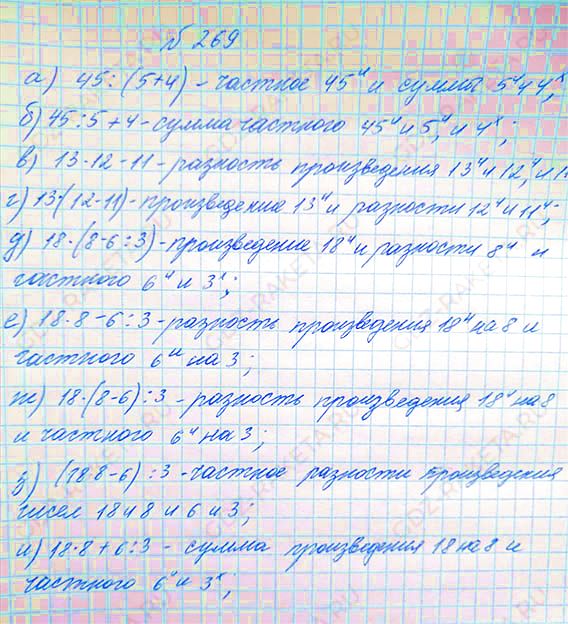 № 269
а) 45 : (5+4) - частное 45и и суммы 5и 4х;
б) 45 : 5 + 4 - сумма частного 45и и 5и, и 4х;
в) 13 · 12 - 11 - разность произведения 13и и 12и, и 11
г) 13·(12-11) - произведение 13и и разности 12и и 11и;
д) 18 · (8 - 6 : 3) - произведение 18и и разности 8и и
частного 6и и 3х;
е) 18 · 8 - 6 : 3 - разность произведения 18и на 8 и
частного 6и на 3;
ж) 18 · (8-6) : 3 - разность произведения 18и на 8
и частного 6и на 3;
з) (18·8-6) : 3 - частное разности произведения
чисел 18 и 8 и 6 и 3;
и) 18·8 + 6 : 3 - сумма произведения 18 на 8 и
частного 6и и 3х;